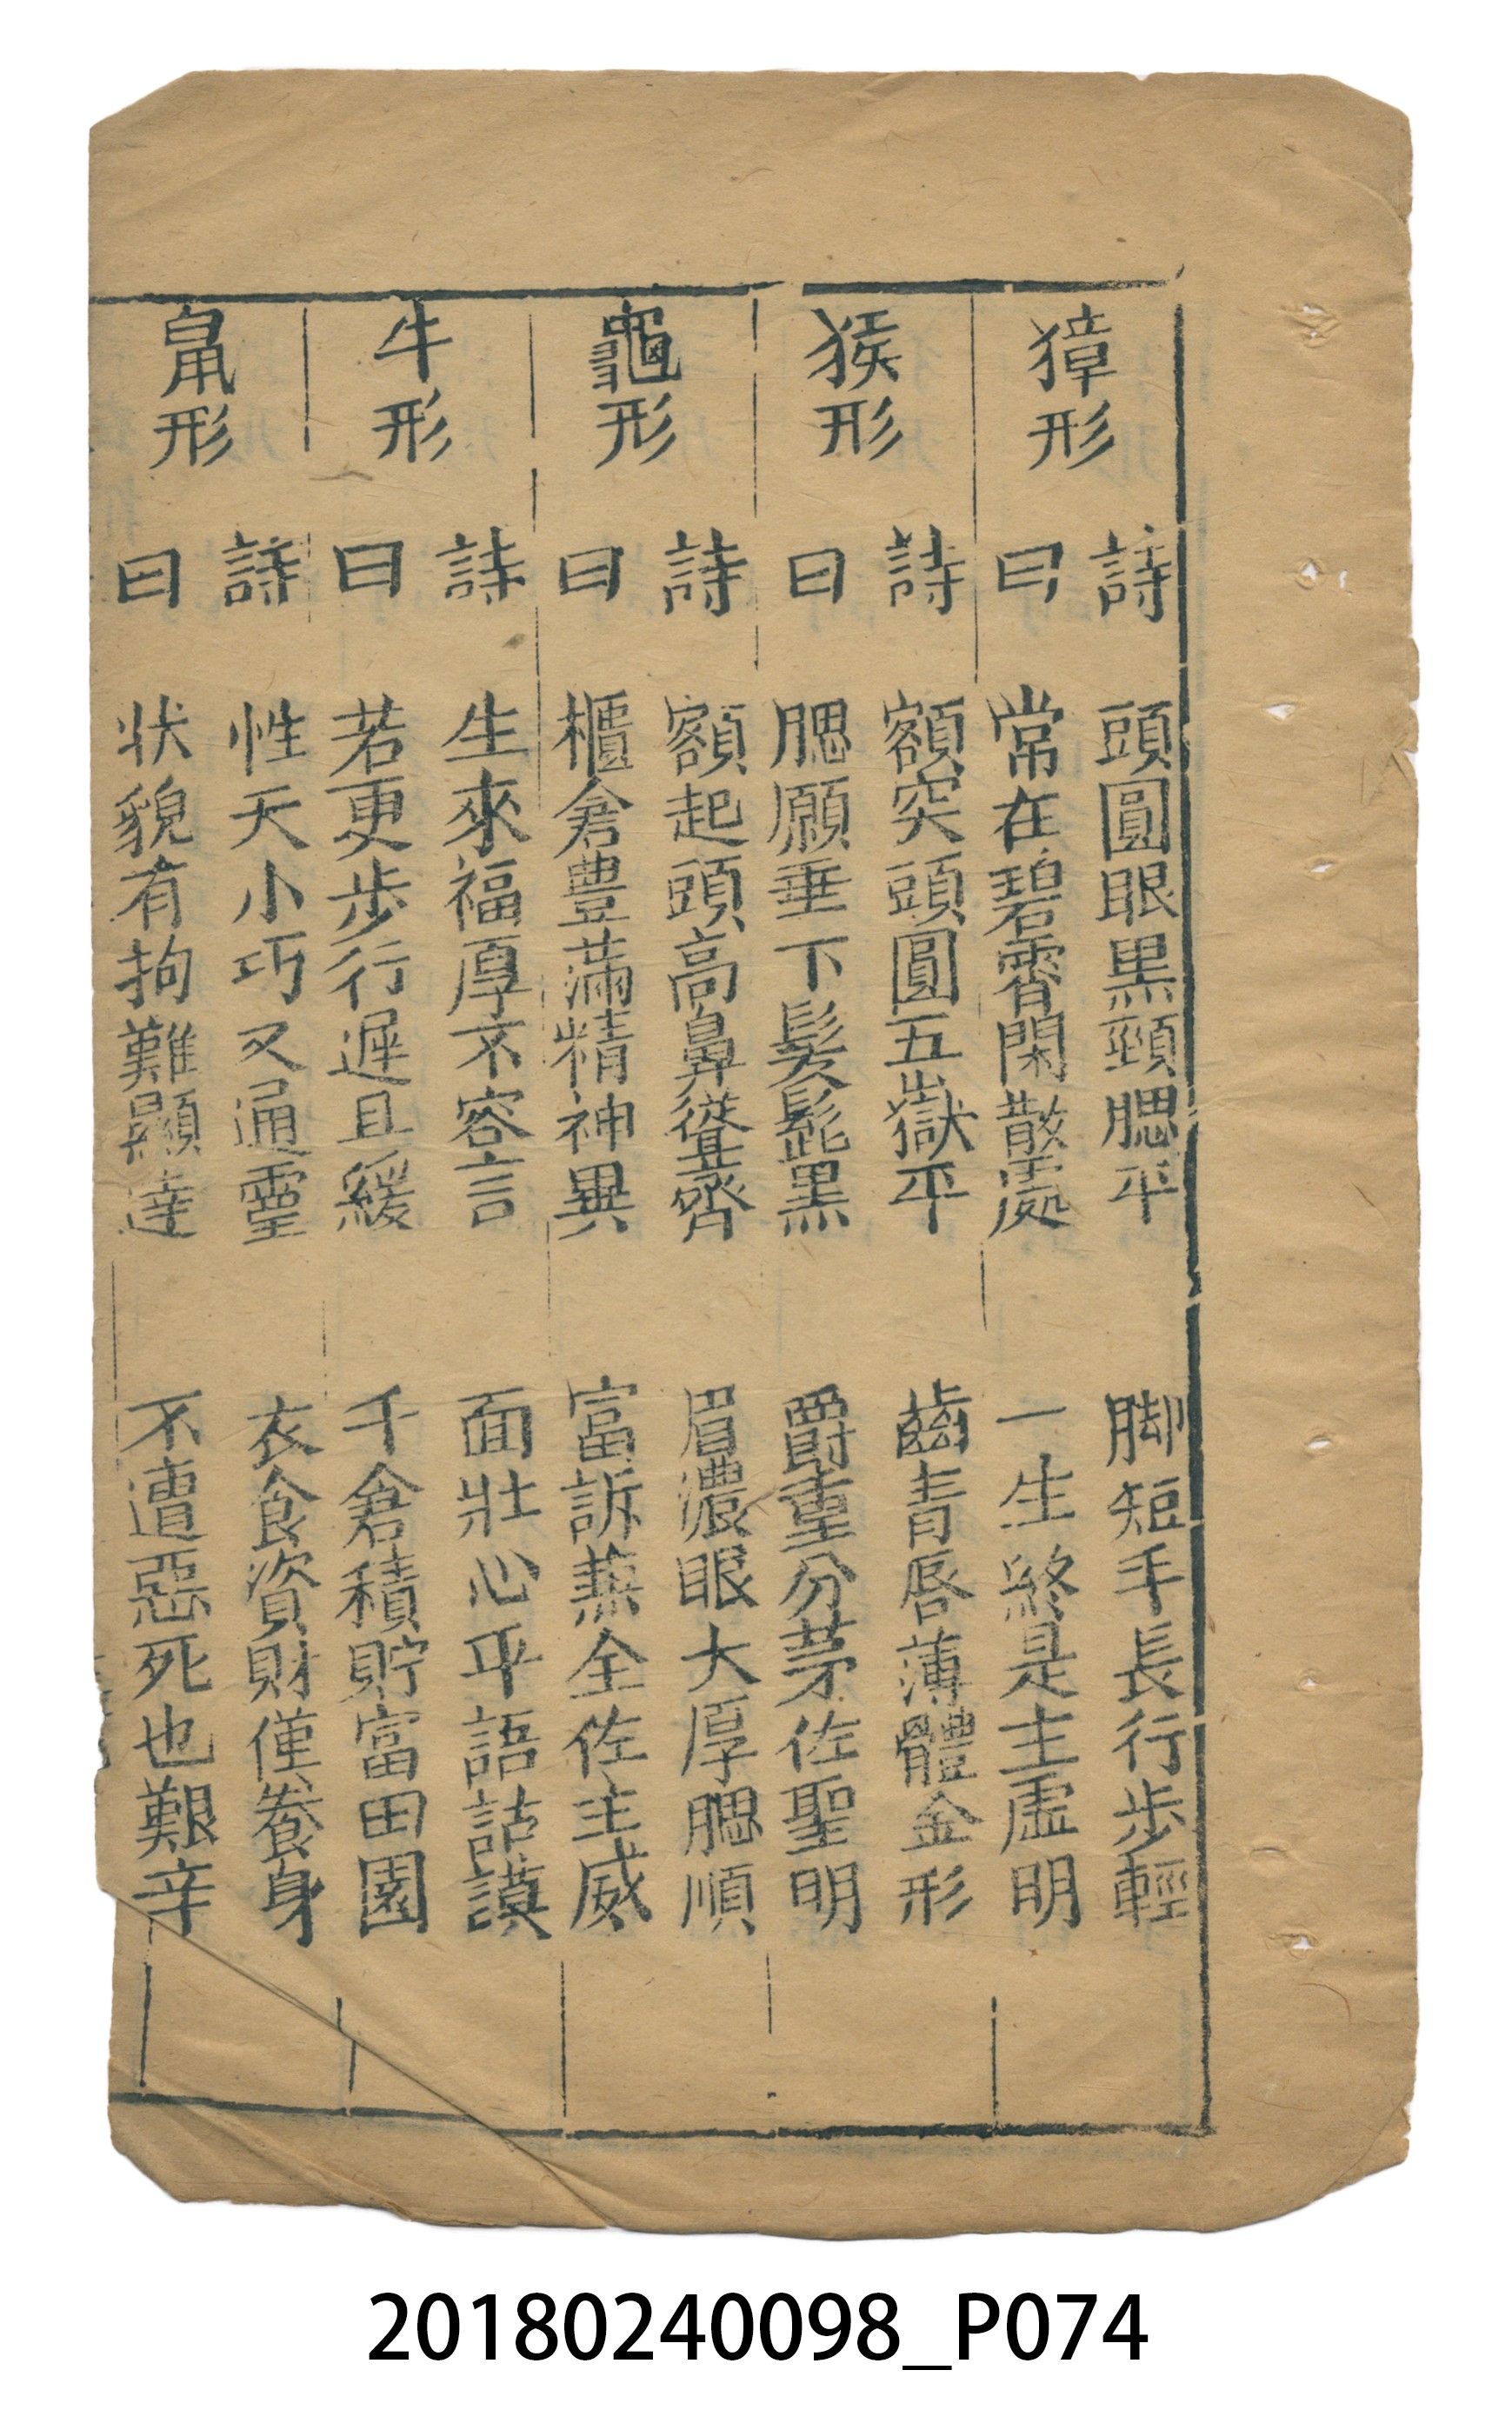 獐形
詩 頭圓眼黒頸腮平 脚短手長行步輕
曰 常在碧霄閑散處 一生終是主虛明
猴形
詩 額突頭圓五嶽平 齒青唇薄體金形
曰 腮願垂下髮髭黒 爵重分茅佐聖明
龜形
詩 額起頭高鼻聳齊 眉濃眼大厚腮順
曰 櫃倉豊滿精神異 富訴蕪全佐主威
牛形
詩 生來福厚不容言 面壯心平語詁謨
曰 若更步行遲且緩 千倉積貯富田園
鼠形
詩 性天小巧又通靈 衣食資財僅養身
曰 狀貌有拘難顯達 不遭惡死也艱辛
20180240098_P074